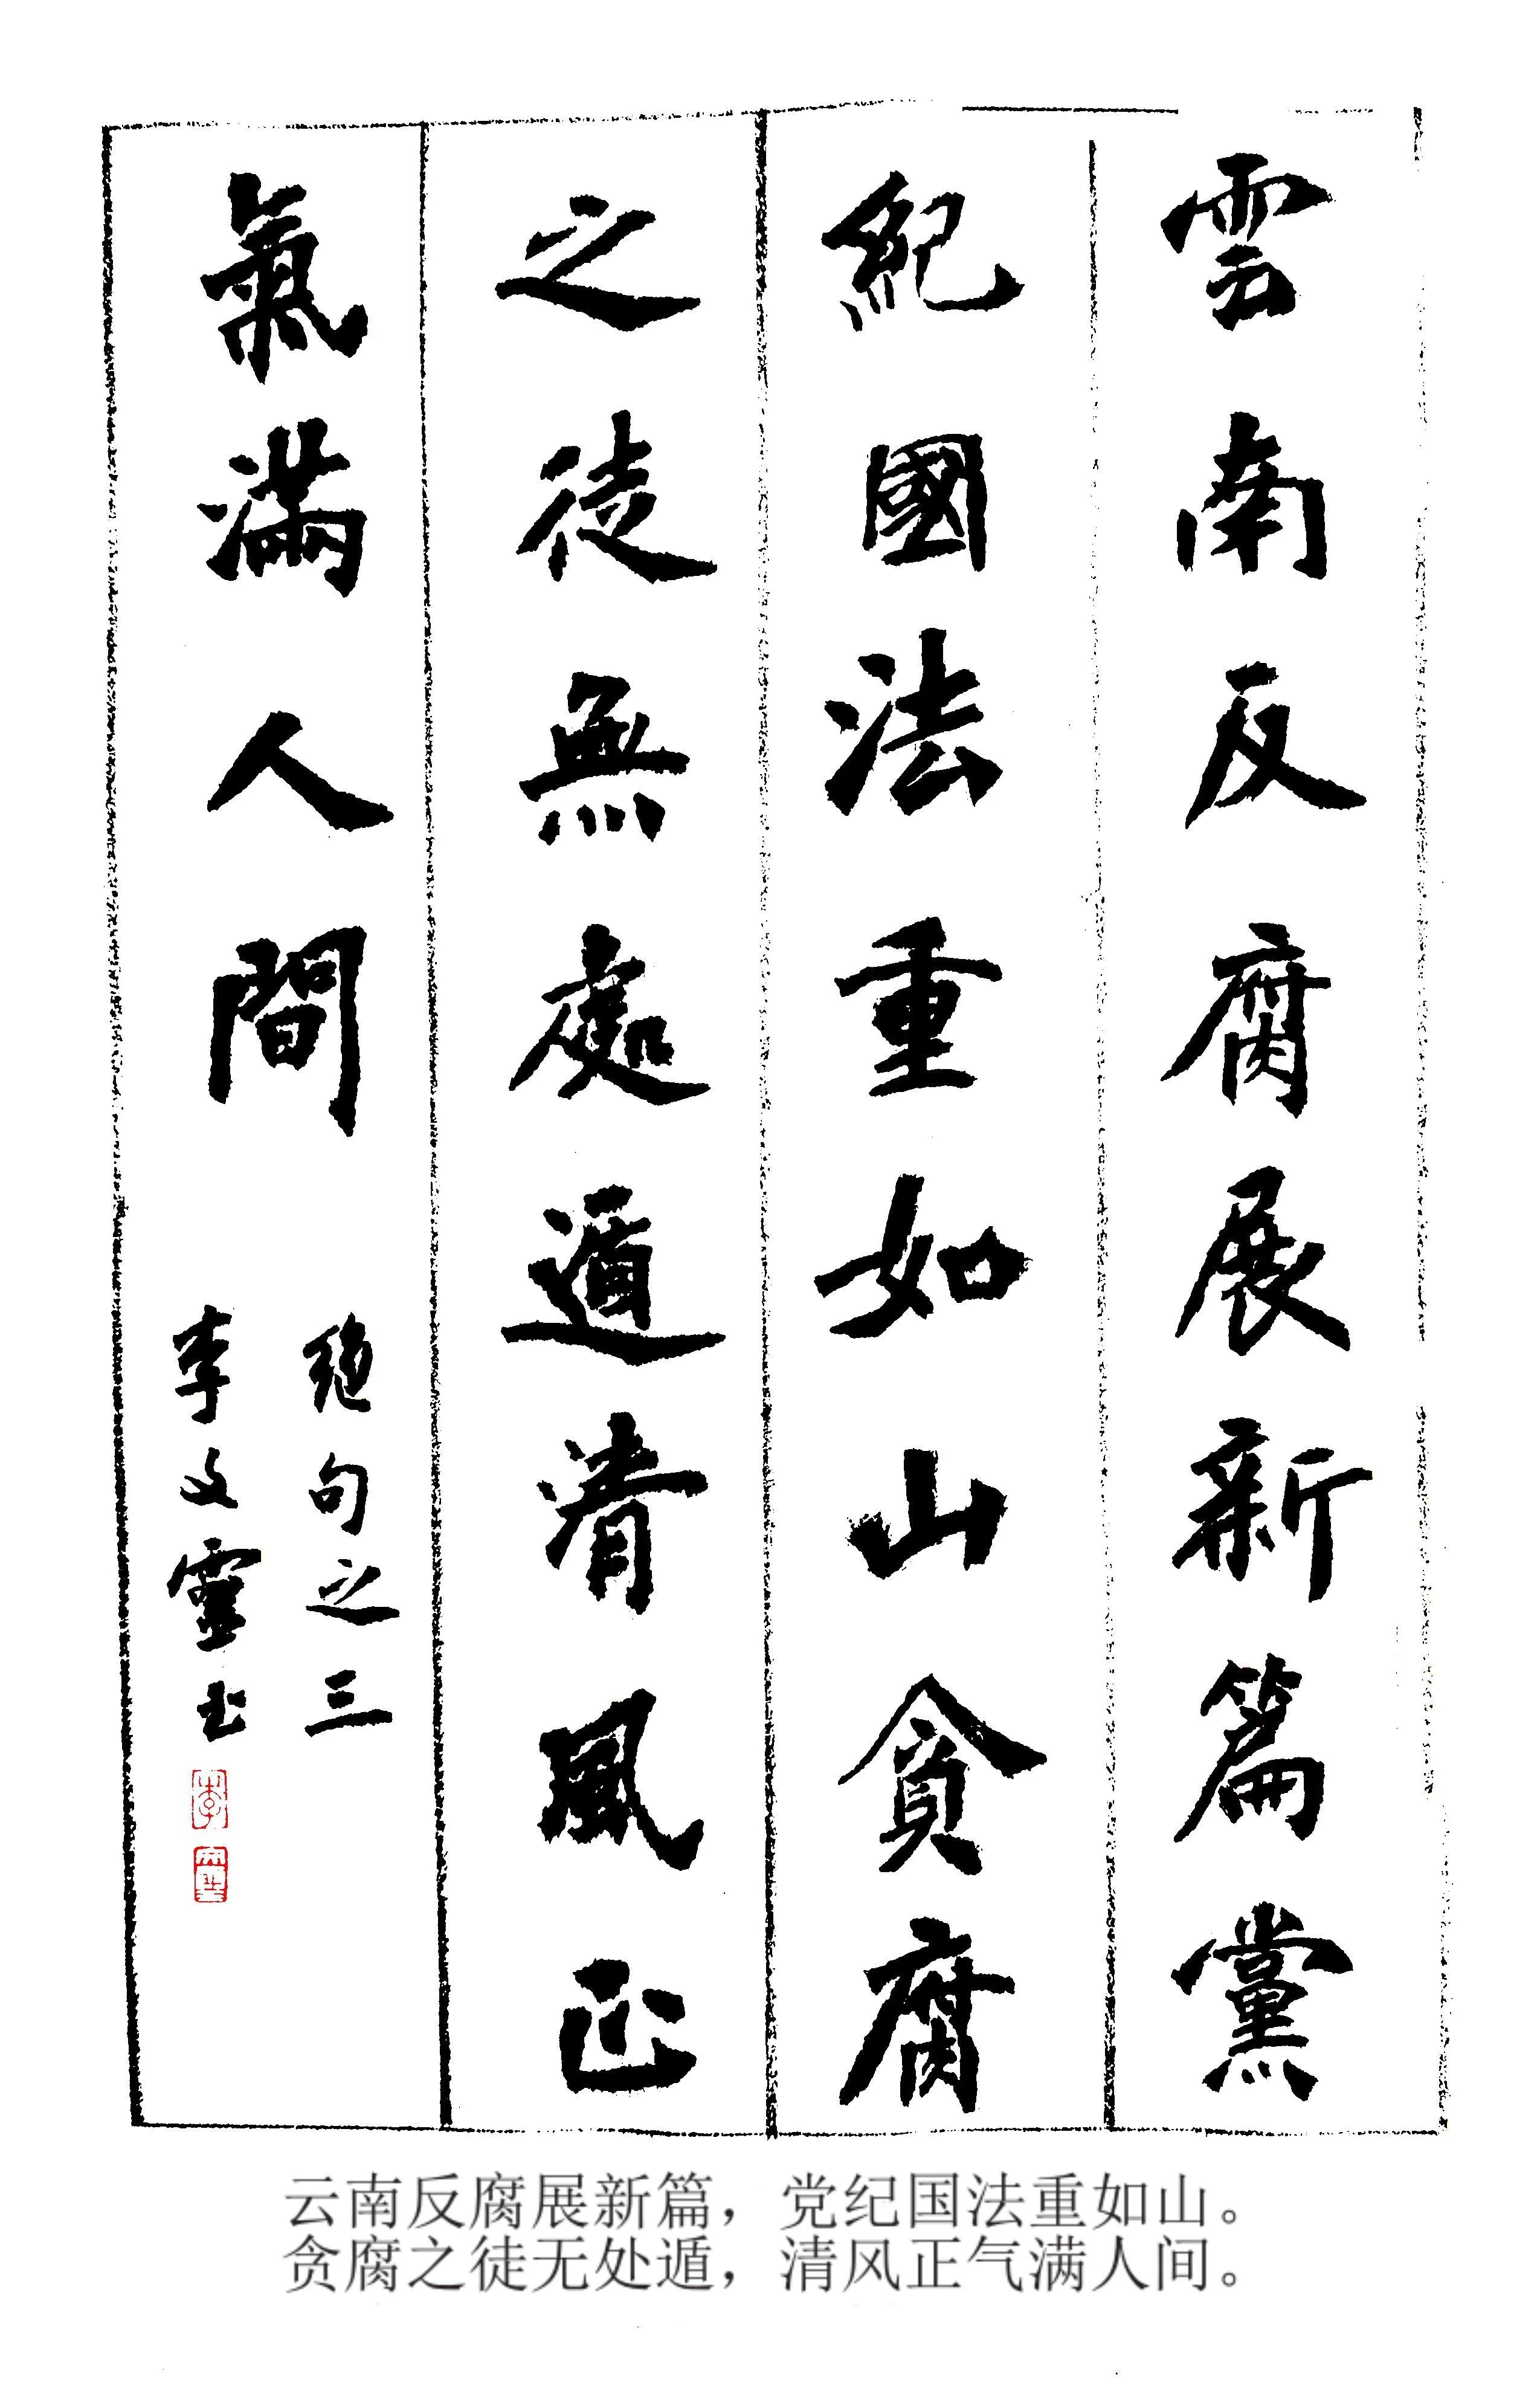 雲南反腐展新篇黨
紀國法重如山貪腐
之徒無處遁清風正
氣滿人間
绝句之三
李文靈书
云南反腐展新篇，党纪国法重如山。
贪腐之徒无处遁，清风正气满人间。